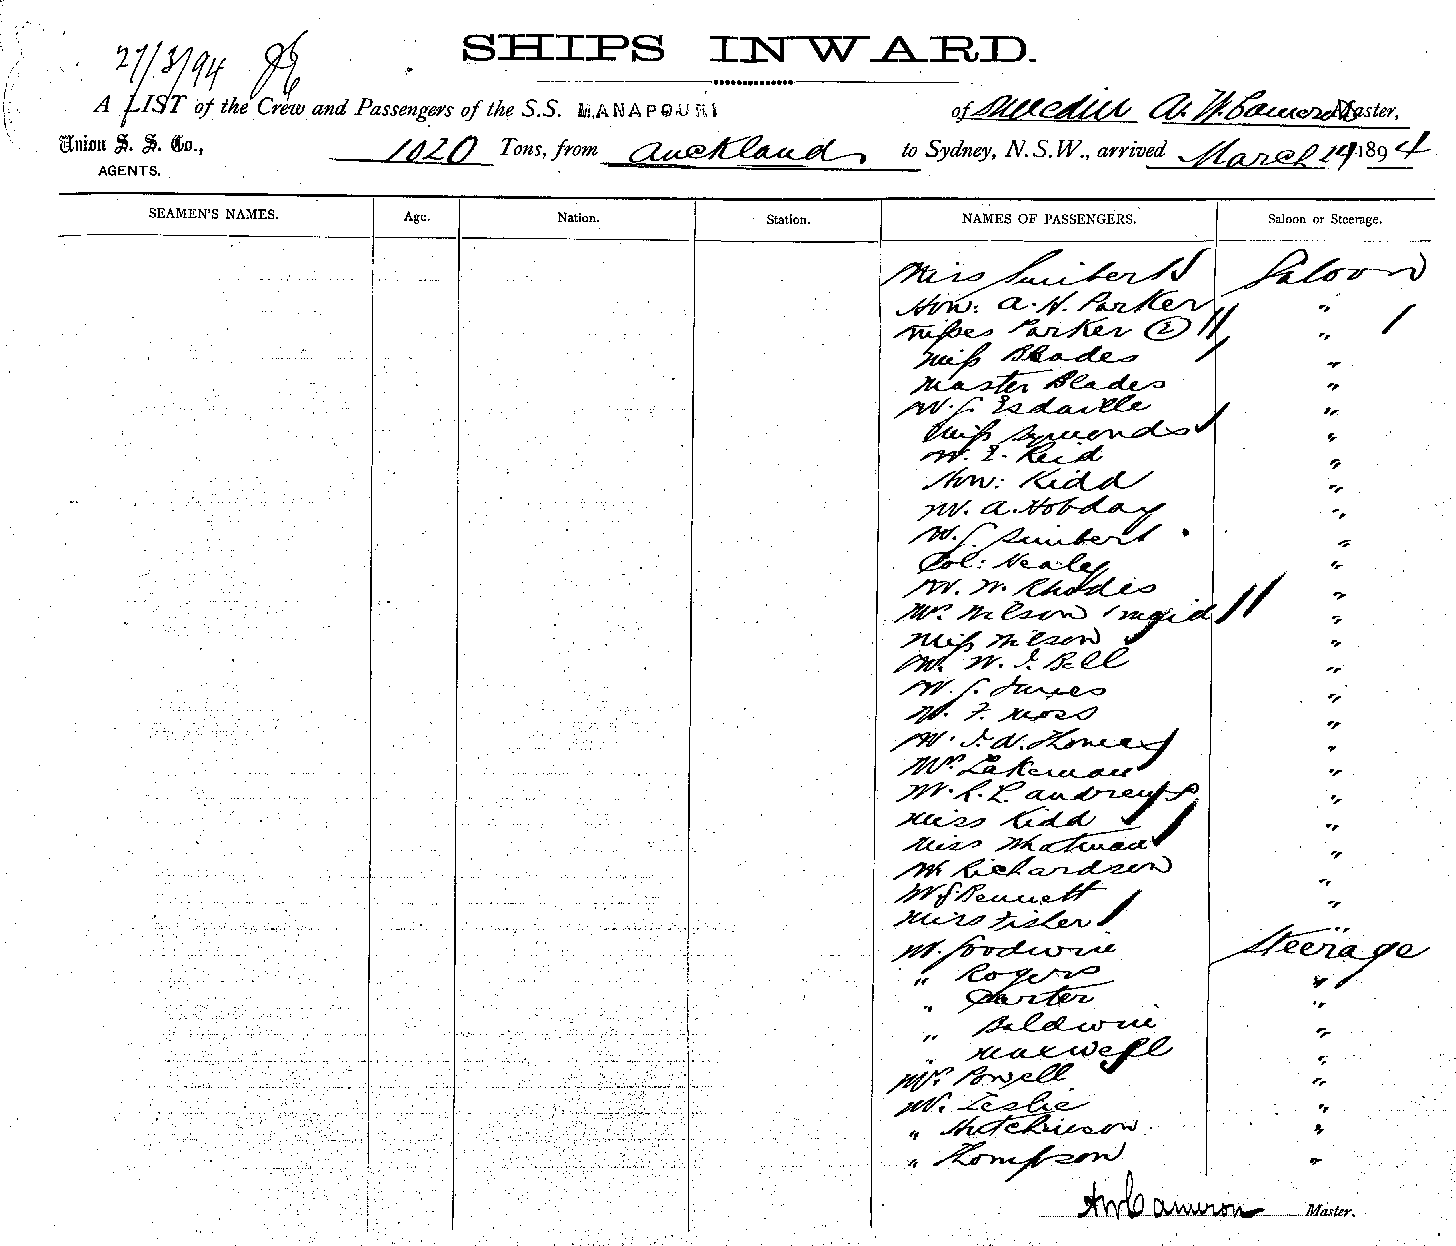 SHIPS INWARD.
27/3/94
A LIST of the Crew and Passengers of the S.S. MANAPOURI of Dunedin A. W. Cameron Master,
Union S. S. Co., 1020 Tons, from Auckland, to Sydney, N.S.W., arrived March 1894
AGENTS.
SEAMEN'S NAMES. Age. Nation. Station. NAMES OF PASSENGERS. Saloon or Steerage.
Miss Saloon
Hon: A. H. Parker "
Misses Parker (2) "
Miss Blades "
Master Blades "
Mr. J. Esdaille "
Miss Symonds "
Mr. E. Reid "
Hon: Kidd "
Mr. A. Hobday "
Mr. J. "
Col: Nealey "
Mr. W. Rhodes "
Mrs. Wilson & maid "
Miss Wilson "
Mr. W. J. Bell "
Mr. J. "
Mr. F. Moss "
Mr. J. N. Thomas "
Mr. Lakeman "
Mr. R. L. Andrews "
Miss Kidd "
Miss Whatman "
Mr Richardson "
Mr J. Bennett "
Miss Fisher "
Mr. Goodwin Steerage
" Rogers "
" Carter "
" Baldwin "
" Maxwell "
Mr. Powell "
Mr. Leslie "
" Hutchinson "
" Thompson "
A W Cameron Master.